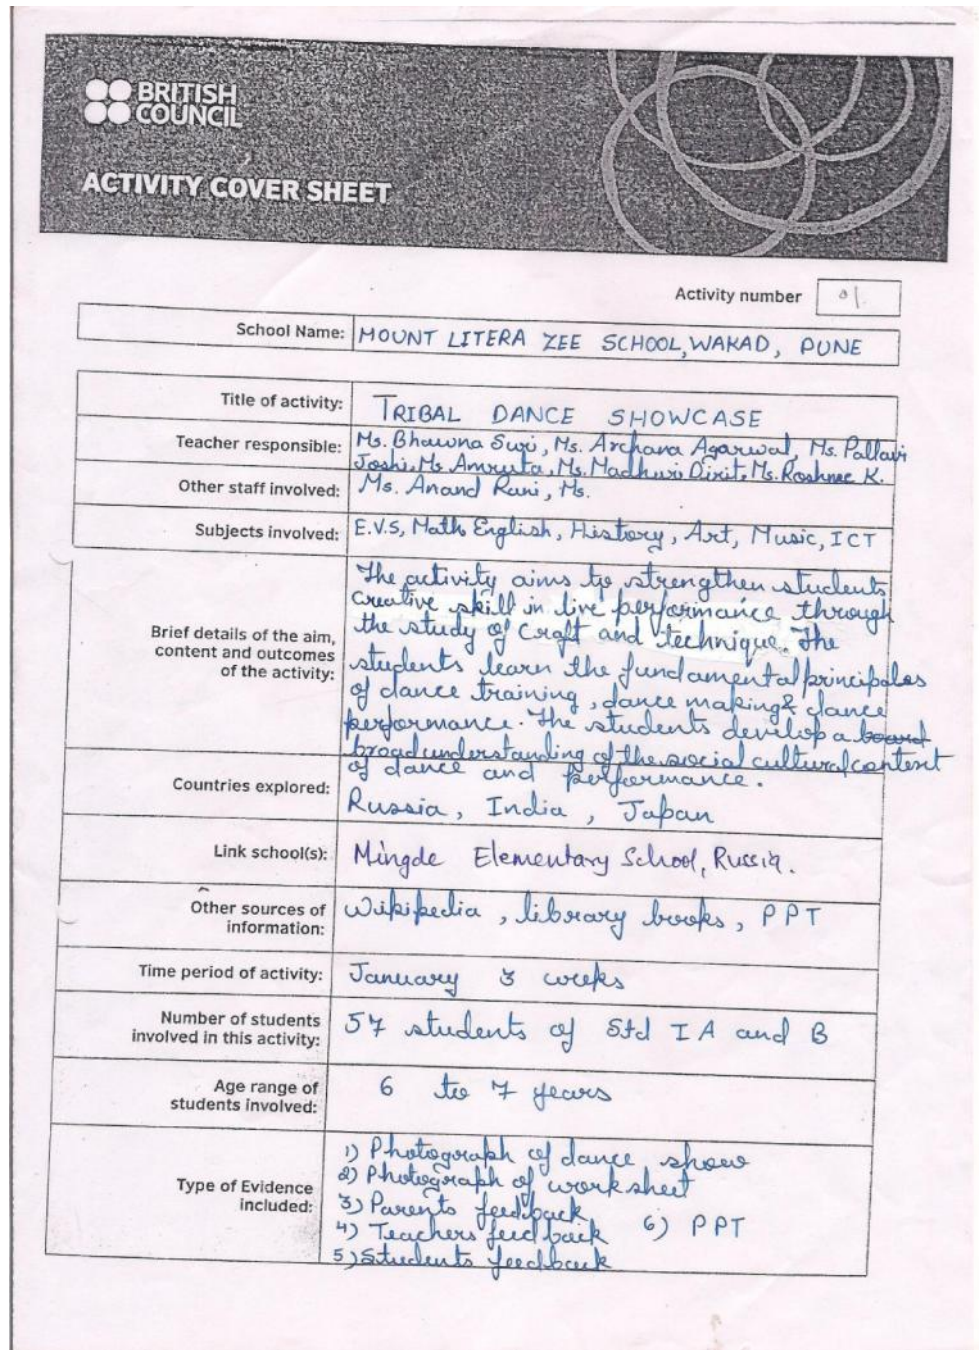 BRITISH
COUNCIL
ACTIVITY COVER SHEET
Activity number 01
School Name: MOUNT LITERA ZEE SCHOOL, WAKAD, PUNE
Title of activity: TRIBAL DANCE SHOWCASE
Teacher responsible: Ms. Bhawna Suri, Ms. Archana Agarwal, Ms. Pallavi
Joshi, Ms Amruta, Ms. Madhuri Dixit, Ms. Roshnee K.
Other staff involved: Ms. Anand Rani, Ms.
Subjects involved: E.V.S, Math English, History, Art, Music, ICT
Brief details of the aim,
content and outcomes
of the activity:
The activity aims to strengthen students
creative skill in live performance through
the study of Craft and technique. The
students learn the fundamental principales
of dance training, dance making & dance
performance. The students develop a board
broad understanding of the social cultural content
of dance and performance.
Countries explored: Russia, India, Japan
Link school(s): Mingde Elementary School, Russia.
Other sources of
information:
Wikipedia, library books, PPT
Time period of activity: January 3 weeks
Number of students
involved in this activity:
57 students of Std I A and B
Age range of
students involved:
6 to 7 years
Type of Evidence
included:
1) Photograph of dance show
2) Photograph of work sheet
3) Parents feedback
4) Teachers feed back 6) PPT
5) Students feedback